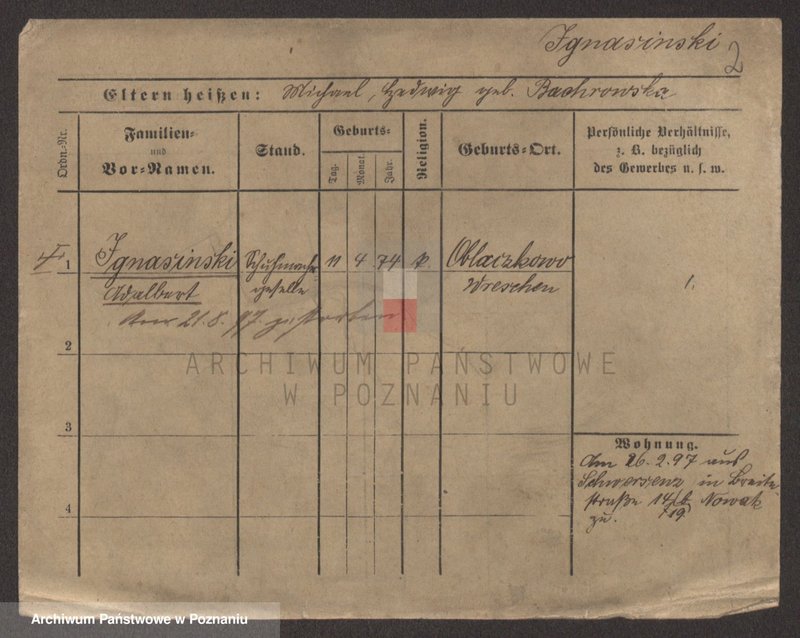 Ignasinski
2
Eltern heißen: Michael, Hedwig geb. Bachrowska
Ordn.-Nr.
Familien-
und
Vor-Namen.
Stand.
Geburts-
Tag. Monat. Jahr.
Religion.
Geburts-Ort.
Persönliche Verhältnisse,
z. B. bezüglich
des Gewerbes u. s. w.
1 Ignasinski Schuhmacher 11 4 74 k Oblaczkowo
Adalbert geselle Wreschen 1.
Am 21.8.97. gestorben
2
ARCHIWUM PAŃSTWOWE
W POZNANIU
3
Wohnung.
Am 26.2.97 aus
Schwersenz in Breite-
straße 14/ b. Nowak
zu. 19
4
Archiwum Państwowe w Poznaniu